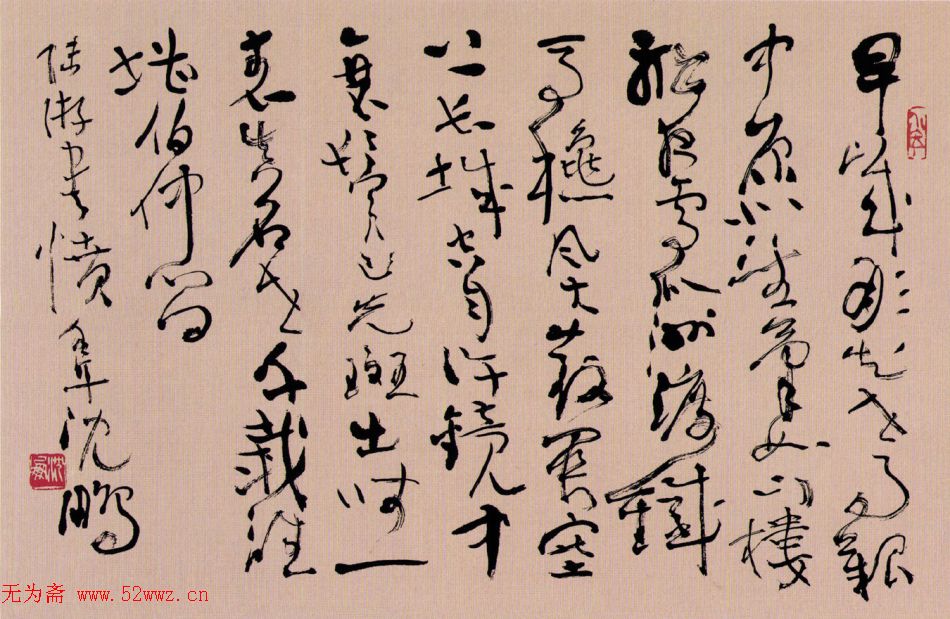 早歲那知世事艱
中原北望氣如山樓
船夜雪瓜洲渡鐵
馬龝風大散關塞
上長城空自許鏡中
衰鬢已先斑出師一
表真名世千載誰
堪伯仲間
陸游書憤 沈鵬
沈鵬
无为斋 www.52wwz.cn